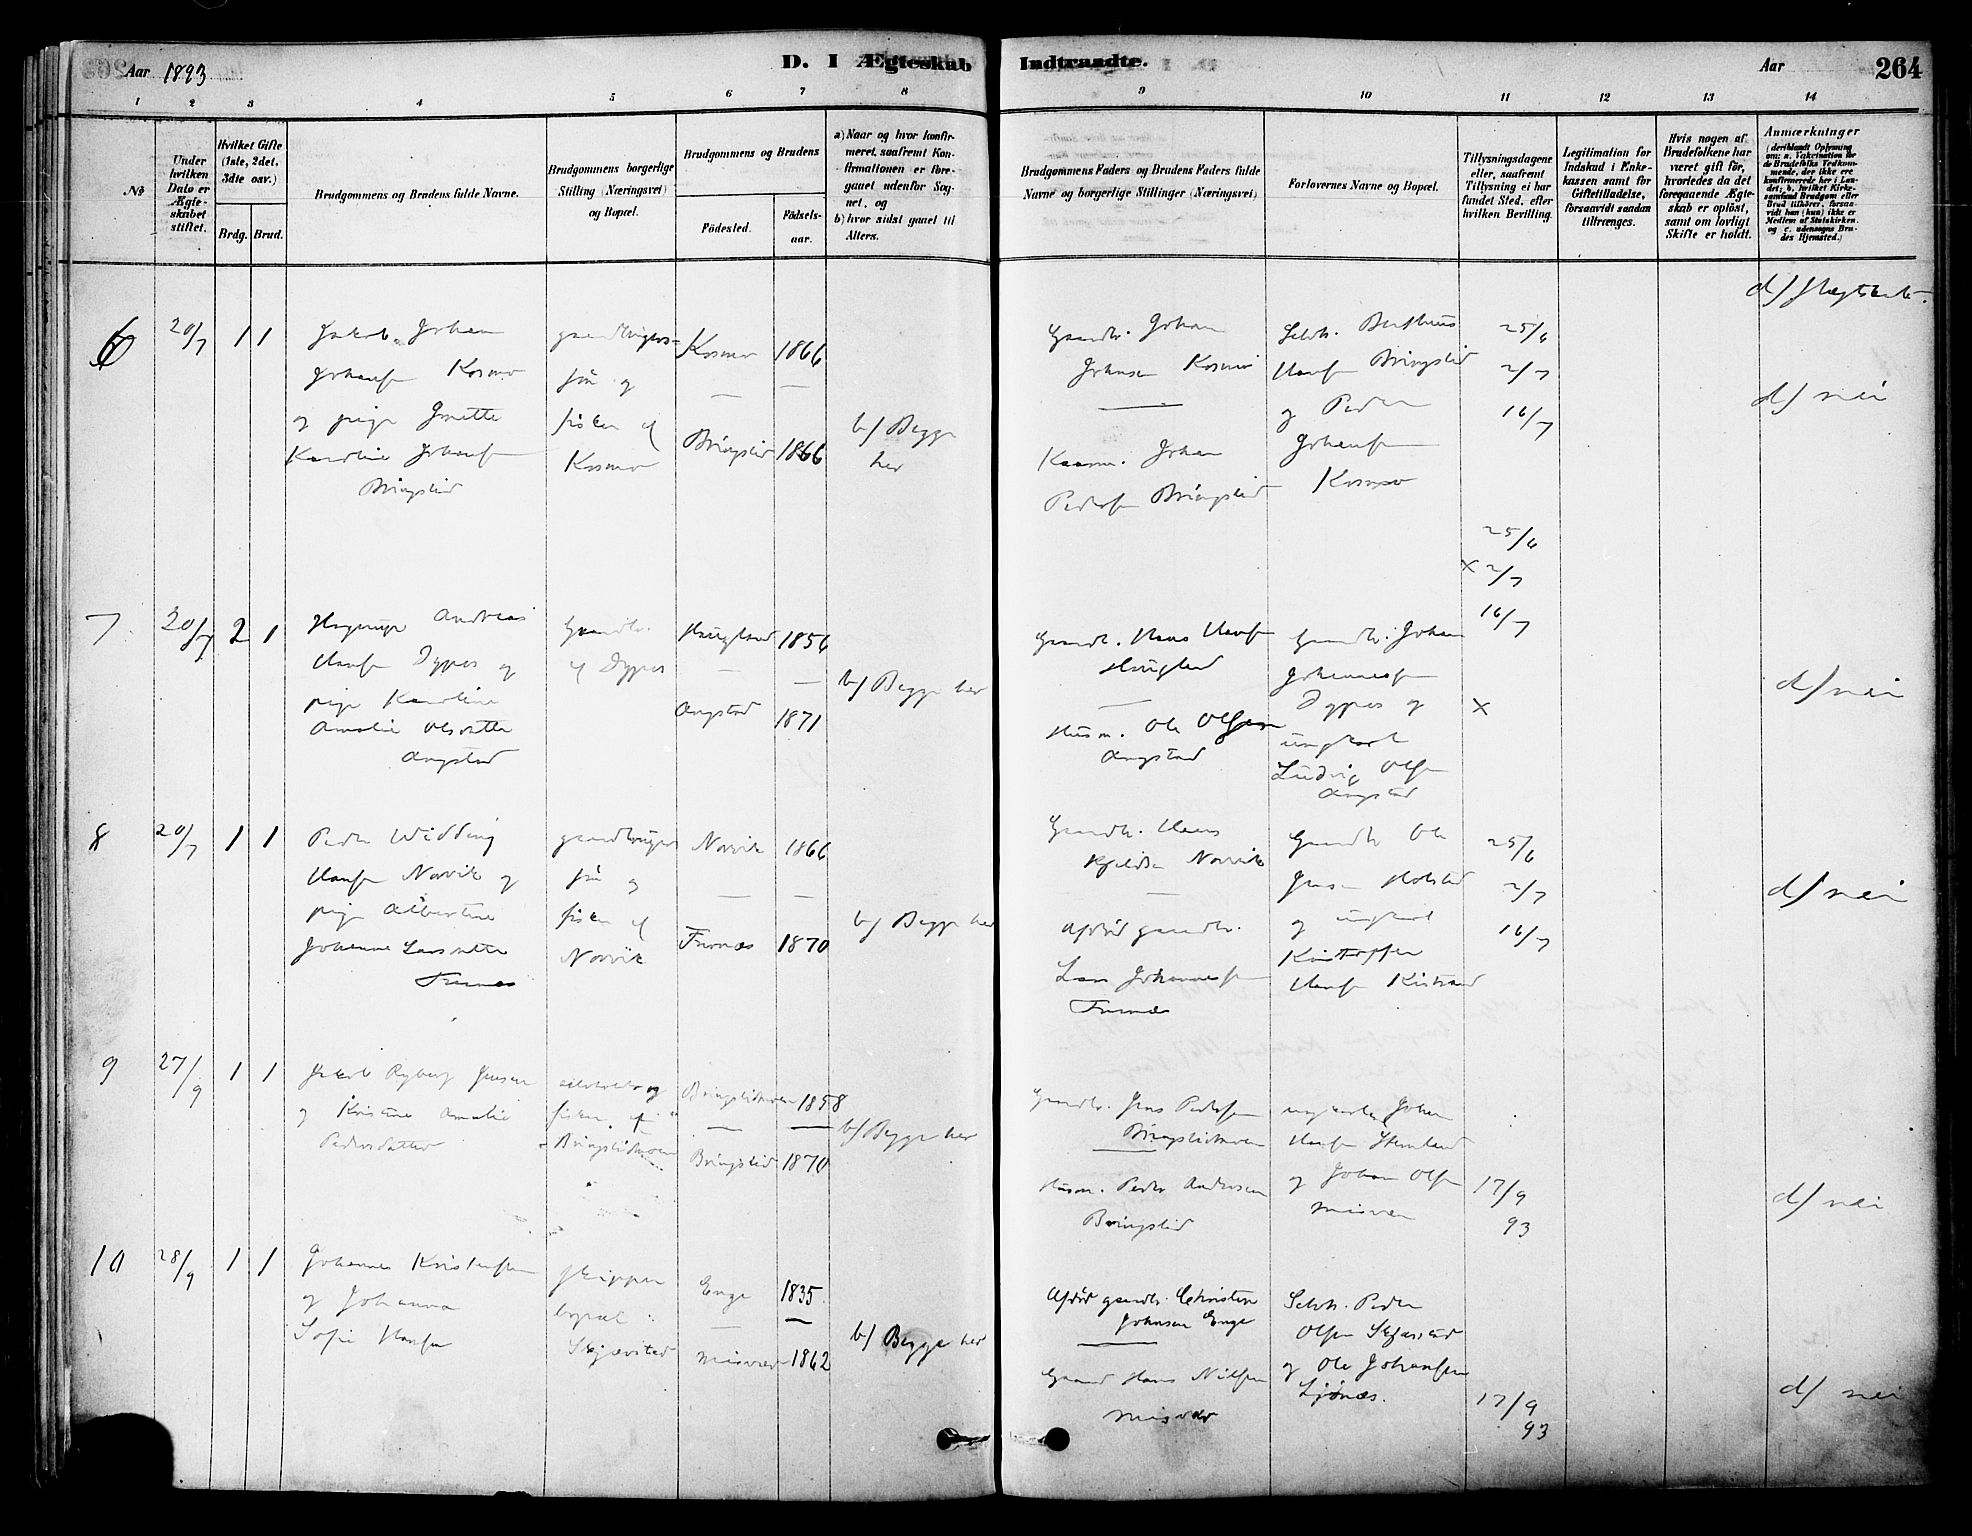 Aar 1893
D. I Ægteskab Indtraadte.
Aar
264
1 2 3 4 5 6 7 8 9 10 11 12 13 14
No
Under hvilken Dato er Ægteskabet stiftet.
Hvilket Gifte (1ste, 2det, 3dte osv.)
Brdg. Brud.
Brudgommens og Brudens fulde Navne.
Brudgommens borgerlige Stilling (Næringsvei) og Bopæl.
Brudgommens og Brudens
Fødested.
Fødsels-aar.
a) Naar og hvor konfirmeret, saafremt Konfirmationen er foregaaet udenfor Sognet, og
b) hvor sidst gaaet til Alters.
Brudgommens Faders og Brudens Faders fulde Navne og borgerlige Stillinger (Næringsvei)
Forlovernes Navne og Bopæl.
Tillysningsdagene eller, saafremt Tillysning ei har fundet Sted, efter hvilken Bevilling.
Legitimation for Indskud i Enkekassen samt for Giftetilladelse, forsaavidt saadan tiltrænges.
Hvis nogen af Brudefolkene har været gift før, hvorledes da det foregaaende Ægteskab er opløst, samt om lovligt Skifte er holdt.
Anmærkninger
6 20/7 1 1
Jakob Johan
Johansen Kosmo
og pige Jonette
Karoline Johansen
Bringslid
gaardbrugers-
søn og
fisker af
Kosmo
Kosmo 1866
Bringslid 1866
b/ Begge
her
Gaardbr. Johan
Johansen Kosmo
Kaarm. Johan
Pedersen Bringslid
Selvh.
Hansen Bringslid
og Peder
Johansen
Kosmo
25/6
2/7
16/7
d/ Slægtskab
d/ nei
7 20/7 2 1
Andreas
Hansen Dypos og
pige Karoline
Amalie Olsdatter
Angstad
Gaardbr.
af Dypos
Haugland 1856
Angstad 1871
b/ Begge her
Gaardb. Hans Hansen
Haugland
Husm. Ole Olsen
Angstad
Gaardbr. Johan
Johannessen
Dypos og
ungkarl
Ludvig Olsen
Angstad
25/6
x 2/7
16/7
x
d/ nei
8 20/7 1 1
Peder Widding
Hansen Norvik og
pige Albertine
Johanne Larsdatter
Furnes
gaardbrugers
søn og
fisker af
Norvik
Norvik 1866
Furnæs 1870
b/ Begge her
Gaardb. Hans
Kjeldsen Norvik
Afdød gaardbr.
Lars Johannessen
Furnæs
Gaardb Ole
Jensen Holstad
og ungkarl
Kristoffer
Hansen Kistrand
25/6
2/7
16/7
d/ nei
9 27/9 1 1
Jakob Ryberg Jensen
og Kristine Amalie
Pedersdatter
og
fisker af
Bringslidmoen
Bringslidmoen 1858
Bringslid 1870
b/ Begge her
Gaardbr. Jens Pedersen
Bringslidmoen
Husm. Peder Andersen
Bringslid
ungkarle Johan
Hansen Stemland
og Johan Olsen
Misvær
17/9
93
d/ nei
10 28/9 1 1
Johannes Kristensen
og Johanna
Sofie Hansen
skipper
bopæl:
Skjævstad
Enge 1835
Misvær 1862
b/ Begge her
Afdød gaardbr. Christen
Johnsen Enge
Gaard Hans Nilsen
Misvær
Selvh. Peder
Olsen Skjevstad
og Ole Johansen
Ljønes.
17/9
93
d/ nei